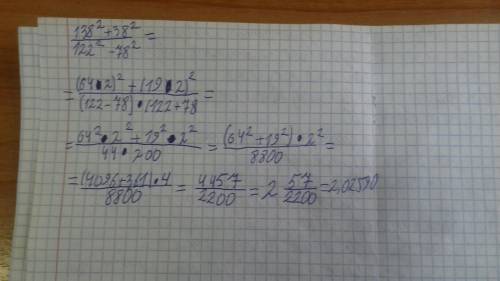 138² + 38² / 122² - 78² =
= (64 • 2)² + (19 • 2)² / (122 - 78) • (122 + 78 =
= 64² • 2² + 19² • 2² / 44 • 200 = (64² + 19²) • 2² / 8800 =
= (4096 + 361) • 4 / 8800 = 4457 / 2200 = 2 57 / 2200 = 2,02590